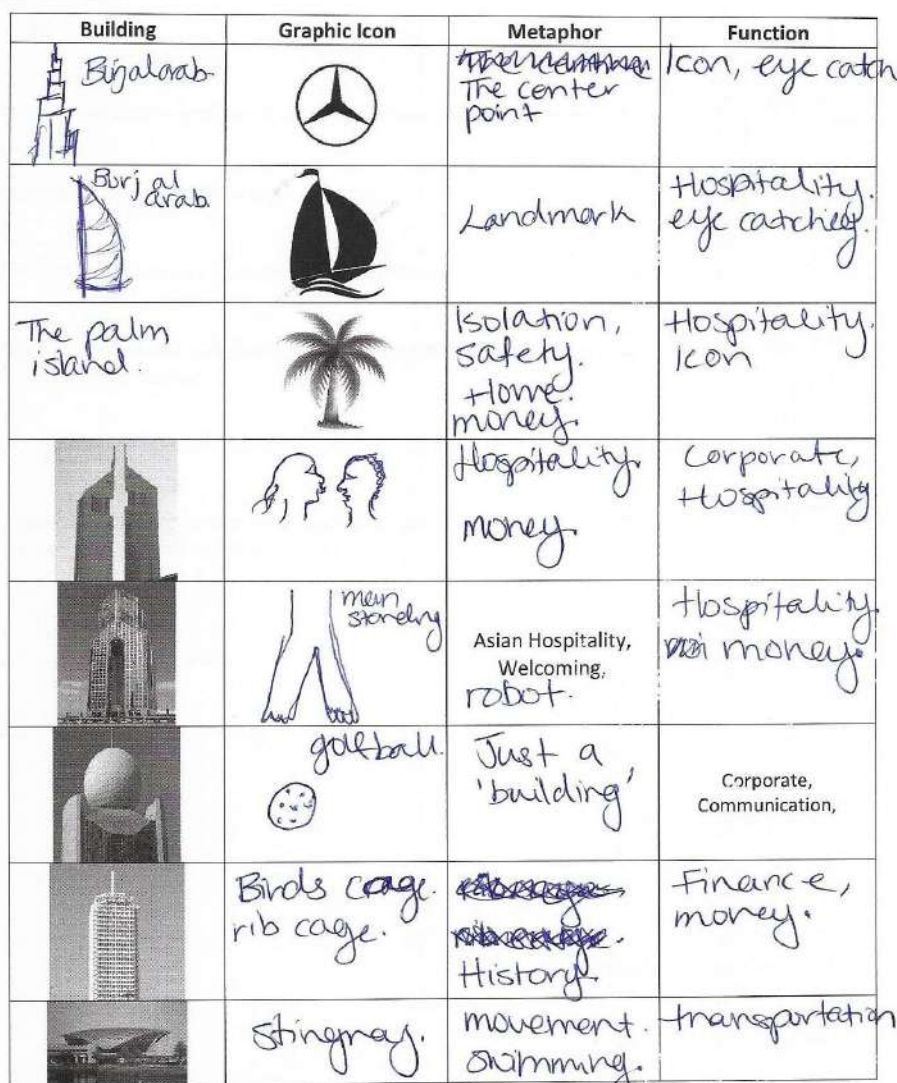 Building Graphic Icon Metaphor Function
Burjalarab
The center
point
Icon, eye catch
Burj al
arab.
Landmark
Hospitality.
eye catchey.
The palm
island.
Isolation,
safety.
Home.
money.
Hospitality.
Icon
Hospitality.
money.
Corporate,
Hospitality
men
standing
Asian Hospitality,
Welcoming,
robot.
Hospitality.
money.
golfball.
Just a
'building'
Corporate,
Communication,
Birds cage.
rib cage.
History.
Finance,
money.
Stingray.
movement.
swimming.
transportation